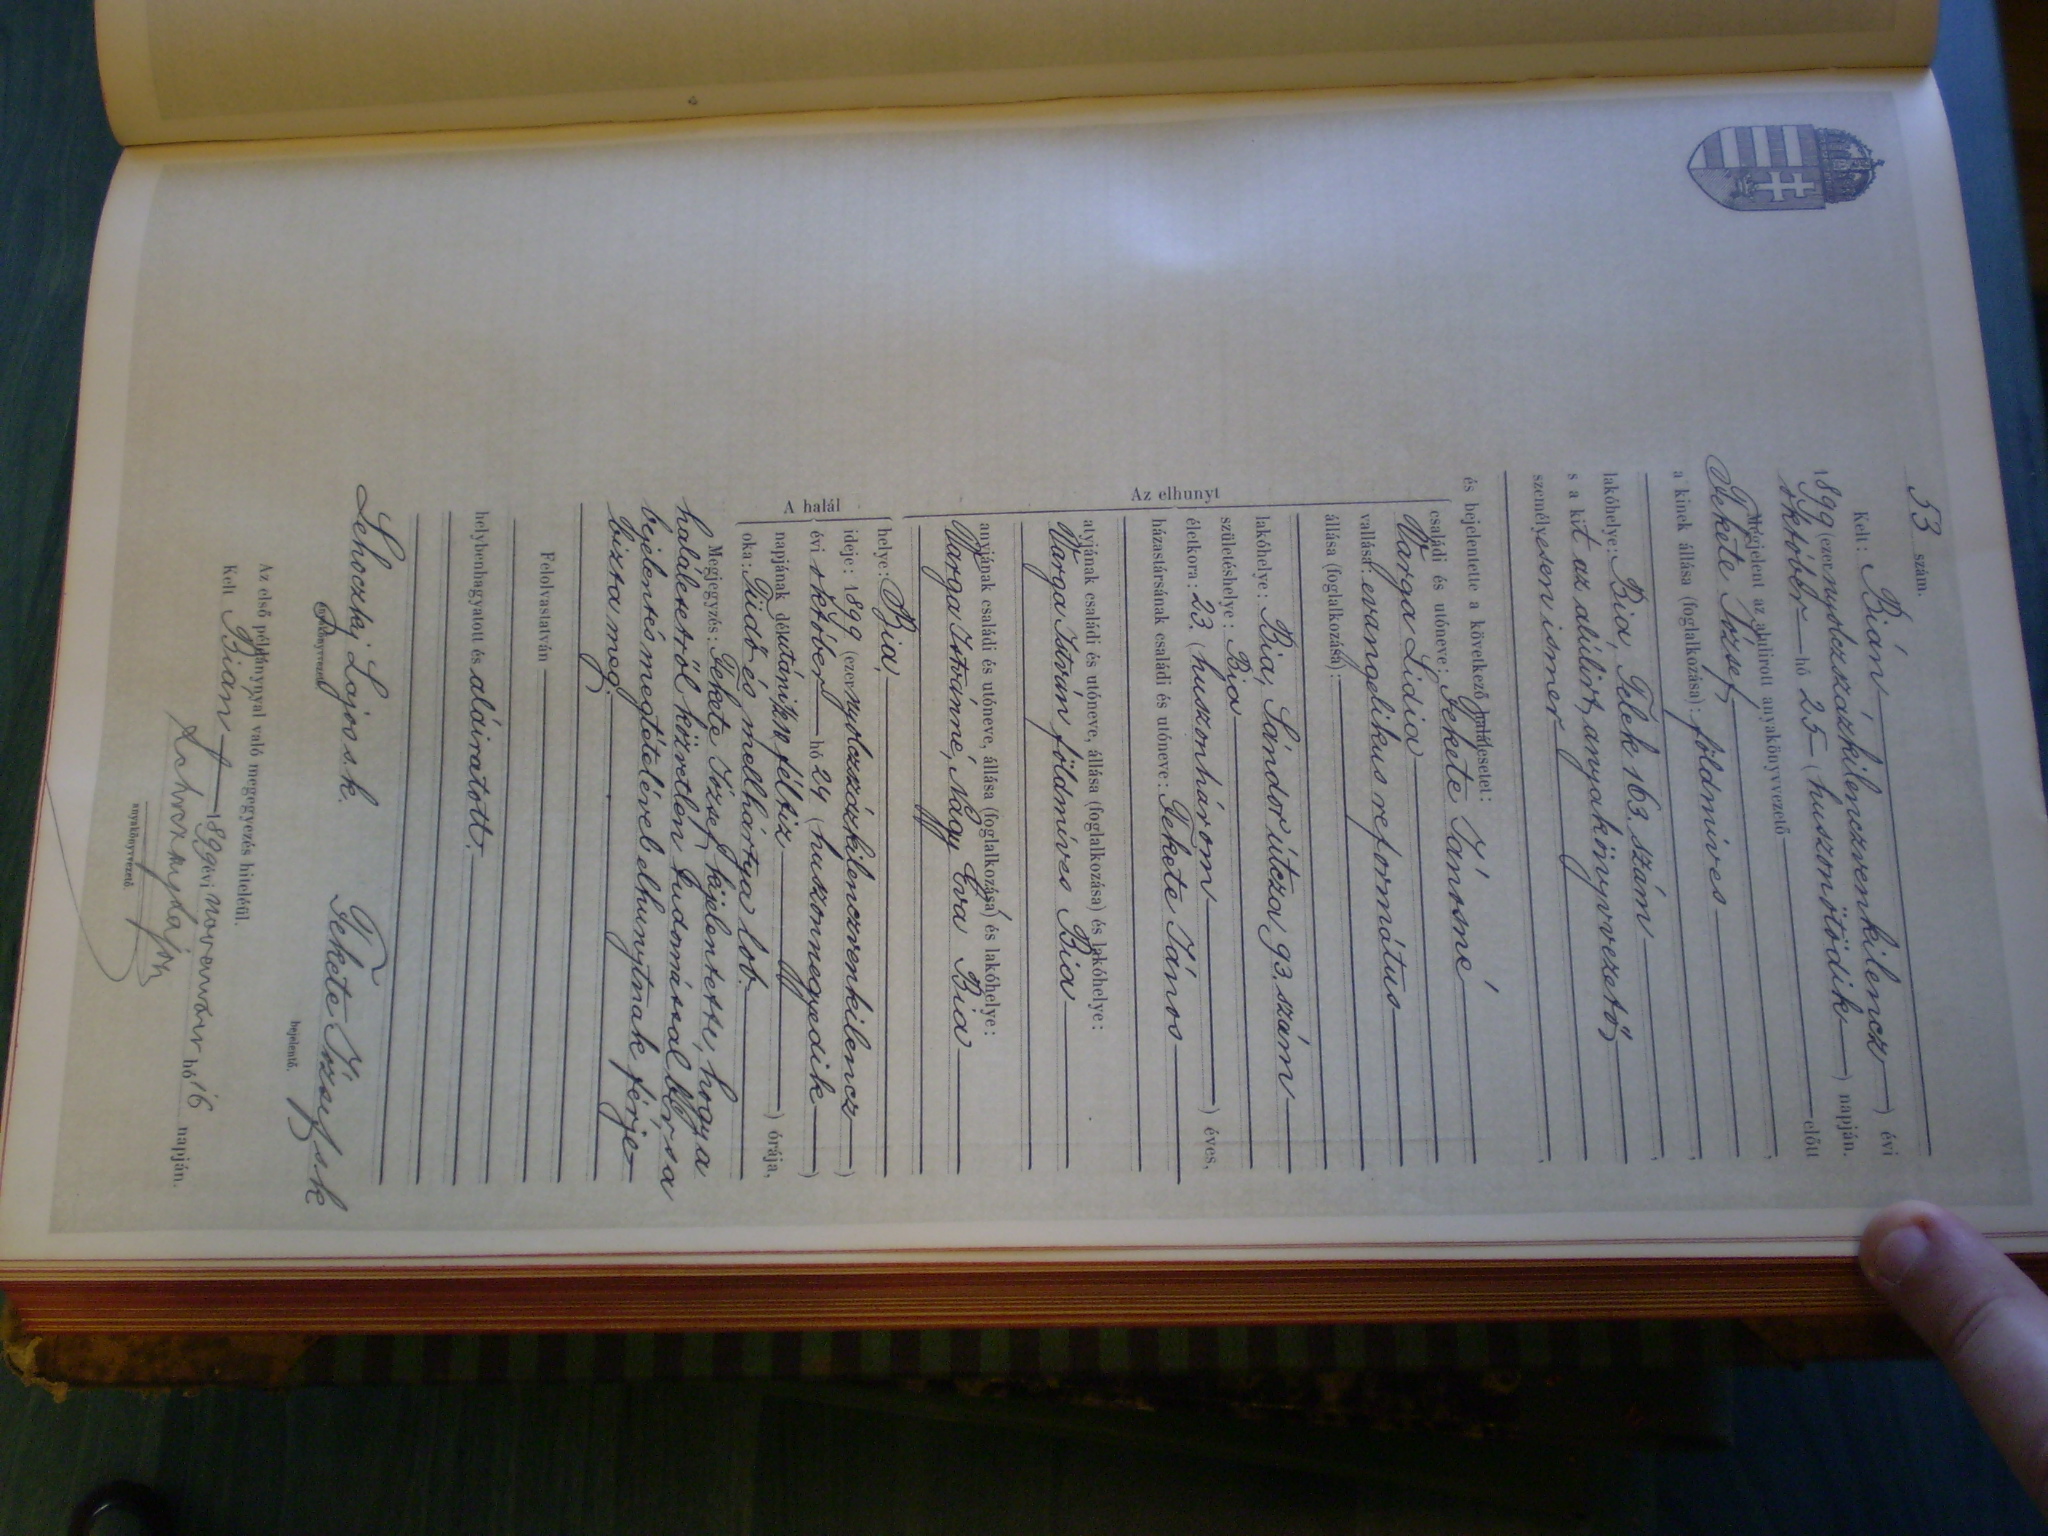 53 szám.
Kelt: Bián
1899 (ezer nyolczszázkilenczvenkilencz) évi
október hó 25 (huszonötödik) napján.
Megjelent az alulirott anyakönyvvezető előtt
Fekete József,
a kinek állása (foglalkozása): földmíves,
lakóhelye: Bia, Telek 163. szám,
s a kit az alúlirt anyakönyvvezető
személyesen ismer,
és bejelentette a következő halálesetet:
Az elhunyt
családi és utóneve: Fekete Jánosné
Varga Lidia
vallása: evangelikus református
állása (foglalkozása):
lakóhelye: Bia, Sándor útcza 93. szám
születéshelye: Bia
életkora: 23. (huszonhárom) éves,
házastársának családi és utóneve: Fekete János
atyjának családi és utóneve, állása (foglalkozása) és lakóhelye:
Varga István földmíves Bia
anyjának családi és utóneve, állása (foglalkozása) és lakóhelye:
Varga Istvánné, Nagy Éva Bia
A halál
helye: Bia,
ideje: 1899 (ezer nyolczszázkilenczvenkilencz)
évi október hó 24 (huszonnegyedik)
napjának délutáni féltiz) órája,
oka: Tüdő és mellhártya lob.
Megjegyzés: Fekete József kijelentette, hogy a
halálesetről közvetlen tudomással bír, s a
bejelentés megtételével elhunytnak férje
bizta meg.
Felolvastatván
helybenhagyatott és aláiratott.
Lehoczky Lajos s.k. Fekete József s.k
anyakönyvvezető. bejelentő.
Az első példánynyal való megegyezés hiteléül.
Kelt Bián 1899 évi november hó 16 napján.
Lehoczky Lajos
anyakönyvvezető.